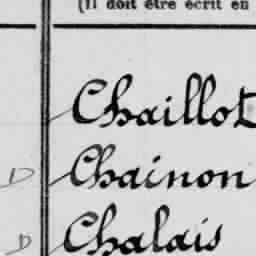 (Il doit être écrit en
Chaillot
D Chainon
D Chalais